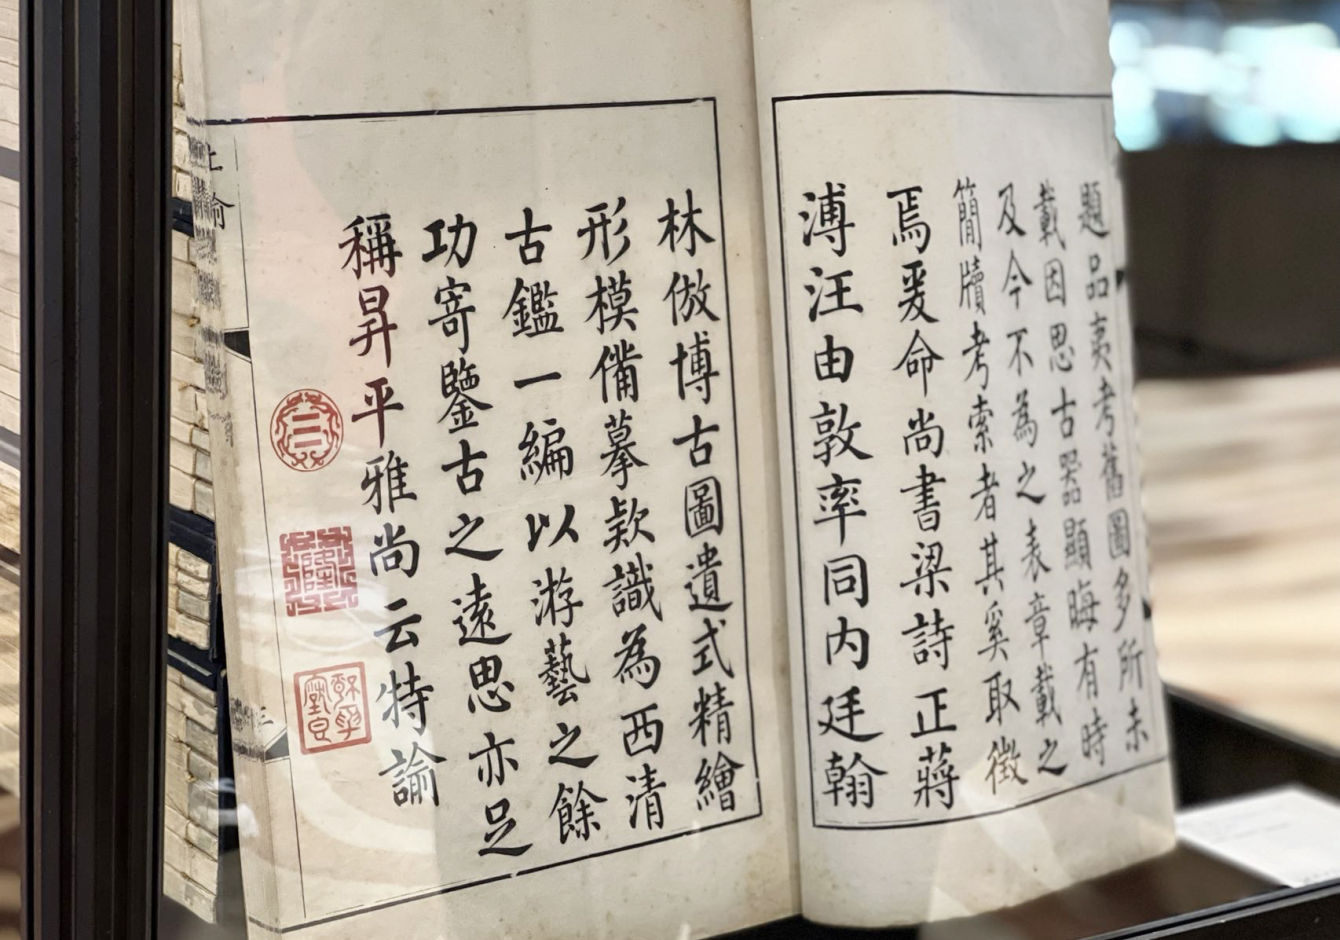 題品夷考舊圖多所未
載因思古器顯晦有時
及今不為之表章載之
簡牘考索者其奚取徵
焉爰命尚書梁詩正蔣
溥汪由敦率同內廷翰
林倣博古圖遺式精繪
形模備摹款識為西清
古鑑一編以游藝之餘
功寄鑒古之遠思亦足
稱昇平雅尚云特諭
上諭